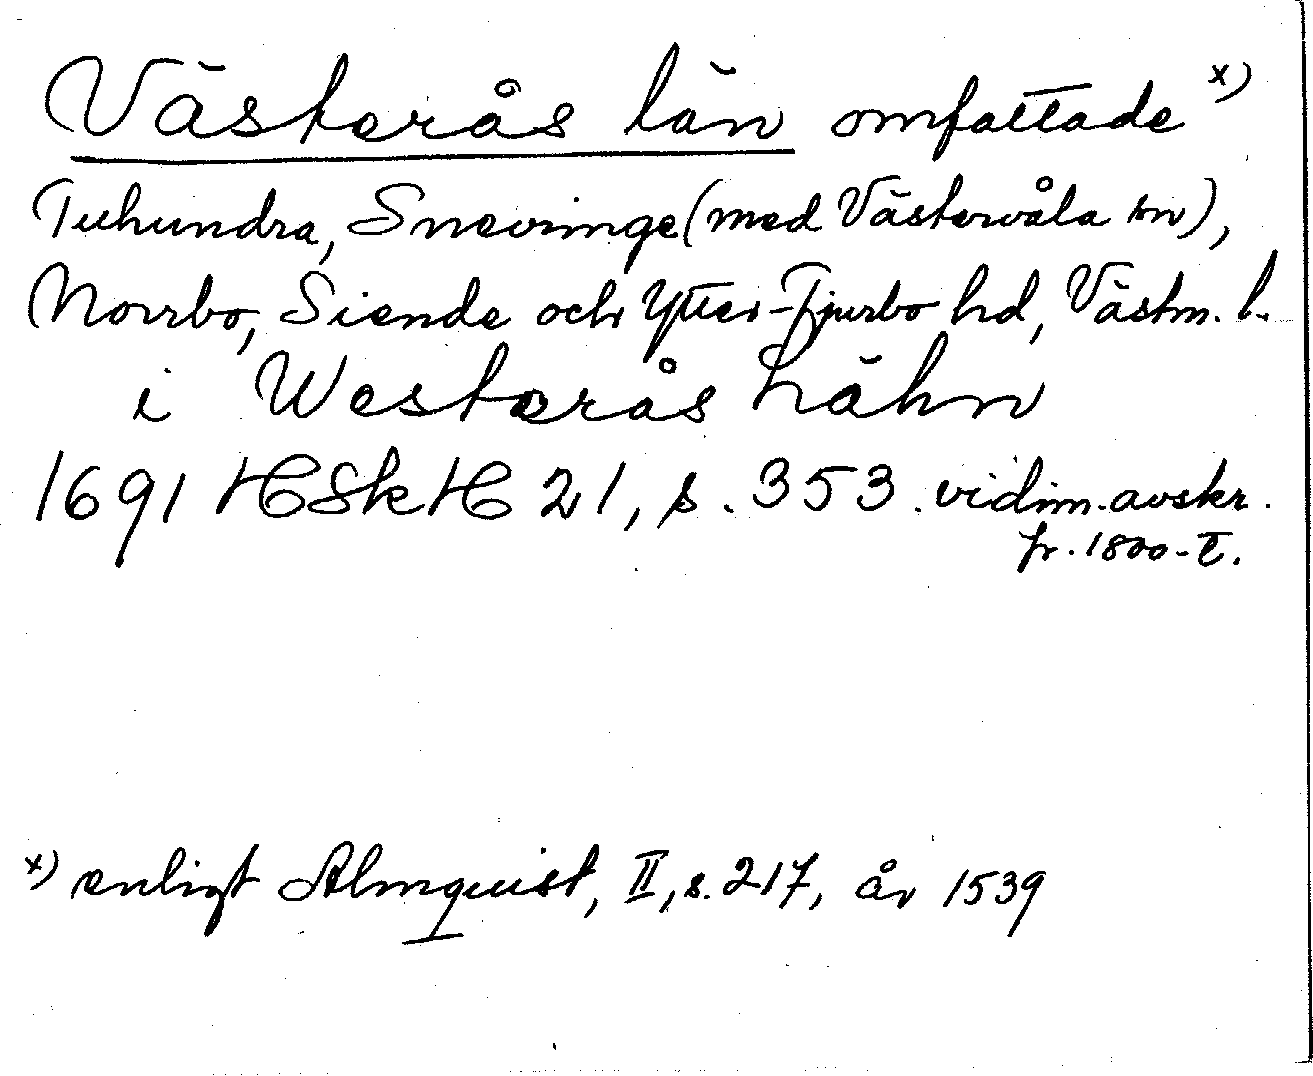 Västerås län omfattade x)
Tuhundra, Snevringe (med Västervåla sn),
Norrbo, Siende och Ytter-Tjurbo hd, Västm. l.
i Westerås Lähn
1691 HSkH 21, s. 353. vidim. avskr.
fr. 1800-t.
x) enligt Almquist, II, s. 217, år 1539